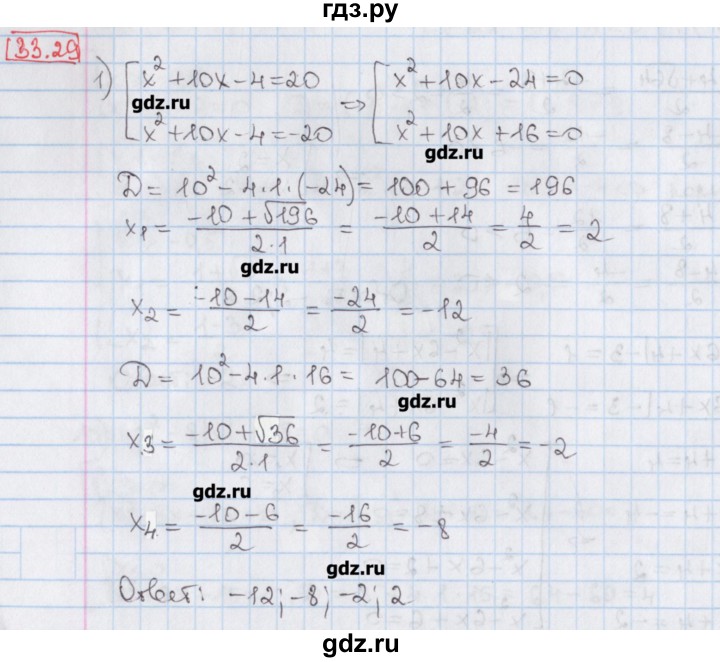 гдз.ру
33.29
1) [x²+10x-4=20 ⇔ [x²+10x-24=0
gdz.ru
x²+10x-4=-20 x²+10x+16=0
gdz.ru
D = 10²-4·1·(-24) = 100+96 = 196
x₁ = (-10+√196)/(2·1) = (-10+14)/2 = 4/2 = 2
gdz.ru
x₂ = (-10-14)/2 = -24/2 = -12
D = 10²-4·1·16 = 100-64 = 36
gdz.ru
x₃ = (-10+√36)/(2·1) = (-10+6)/2 = -4/2 = -2
gdz.ru
x₄ = (-10-6)/2 = -16/2 = -8
gdz.ru
Ответ: -12; -8; -2; 2
gdz.ru